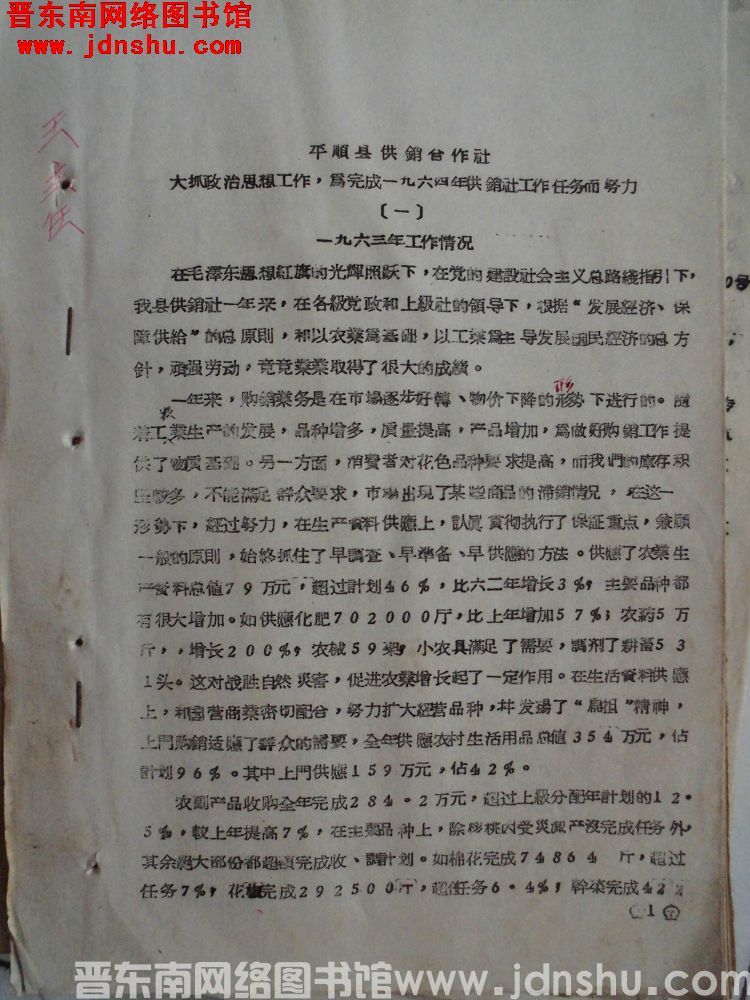 晋东南网络图书馆
www.jdnshu.com
平順县供銷合作社
大抓政治思想工作，爲完成一九六四年供銷社工作任务而努力
（一）
一九六三年工作情况
在毛澤东思想紅旗的光輝照跃下，在党的建設社会主义总路綫指引下，
我县供銷社一年来，在各級党政和上級社的領导下，根据“发展經济、保
障供給”的总原則，和以农業爲基础，以工業爲主导发展国民經济的总方
針，頑强劳动，兢兢業業取得了很大的成績。
一年来，购銷業务是在市場逐步好轉、物价下降的形势下进行的。随
着工農業生产的发展，品种增多，质量提高，产品增加，爲做好购銷工作提
供了物质基礎。另一方面，消費者对花色品种要求提高，而我們的庫存积
較多，不能滿足群众要求，市場出現了某些商品的滞銷情况，在这一
形势下，經过努力，在生产資料供應上，認眞貫彻执行了保証重点，兼顧
一般的原則，始終抓住了早調查、早準备、早供應的方法。供應了农業生
产資料总值79万元，超过計划46%，比六二年增长3%，主要品种都
有很大增加。如供應化肥702000斤，比上年增加57%；农葯5万
斤，增长200%，农械59架，小农具滿足了需要，調剂了耕畜53
1头。这对战胜自然災害，促进农業增长起了一定作用。在生活資料供應
上，和国营商業密切配合，努力扩大經营品种，幷发揚了“扁担”精神，
上門购銷适應了群众的需要，全年供應农村生活用品总值354万元，佔
計划96%。其中上門供應159万元，佔42%。
农副产品收购全年完成284.2万元，超过上級分配年計划的12.
5%，較上年提高7%，在主要品种上，除核桃因受災减产沒完成任务外，
其余絕大部份都超額完成收、調計划。如棉花完成74864斤，超过
任务7%，花椒完成292500斤，超任务6.4%，幹菜完成422
1
晋东南网络图书馆www.jdnshu.com